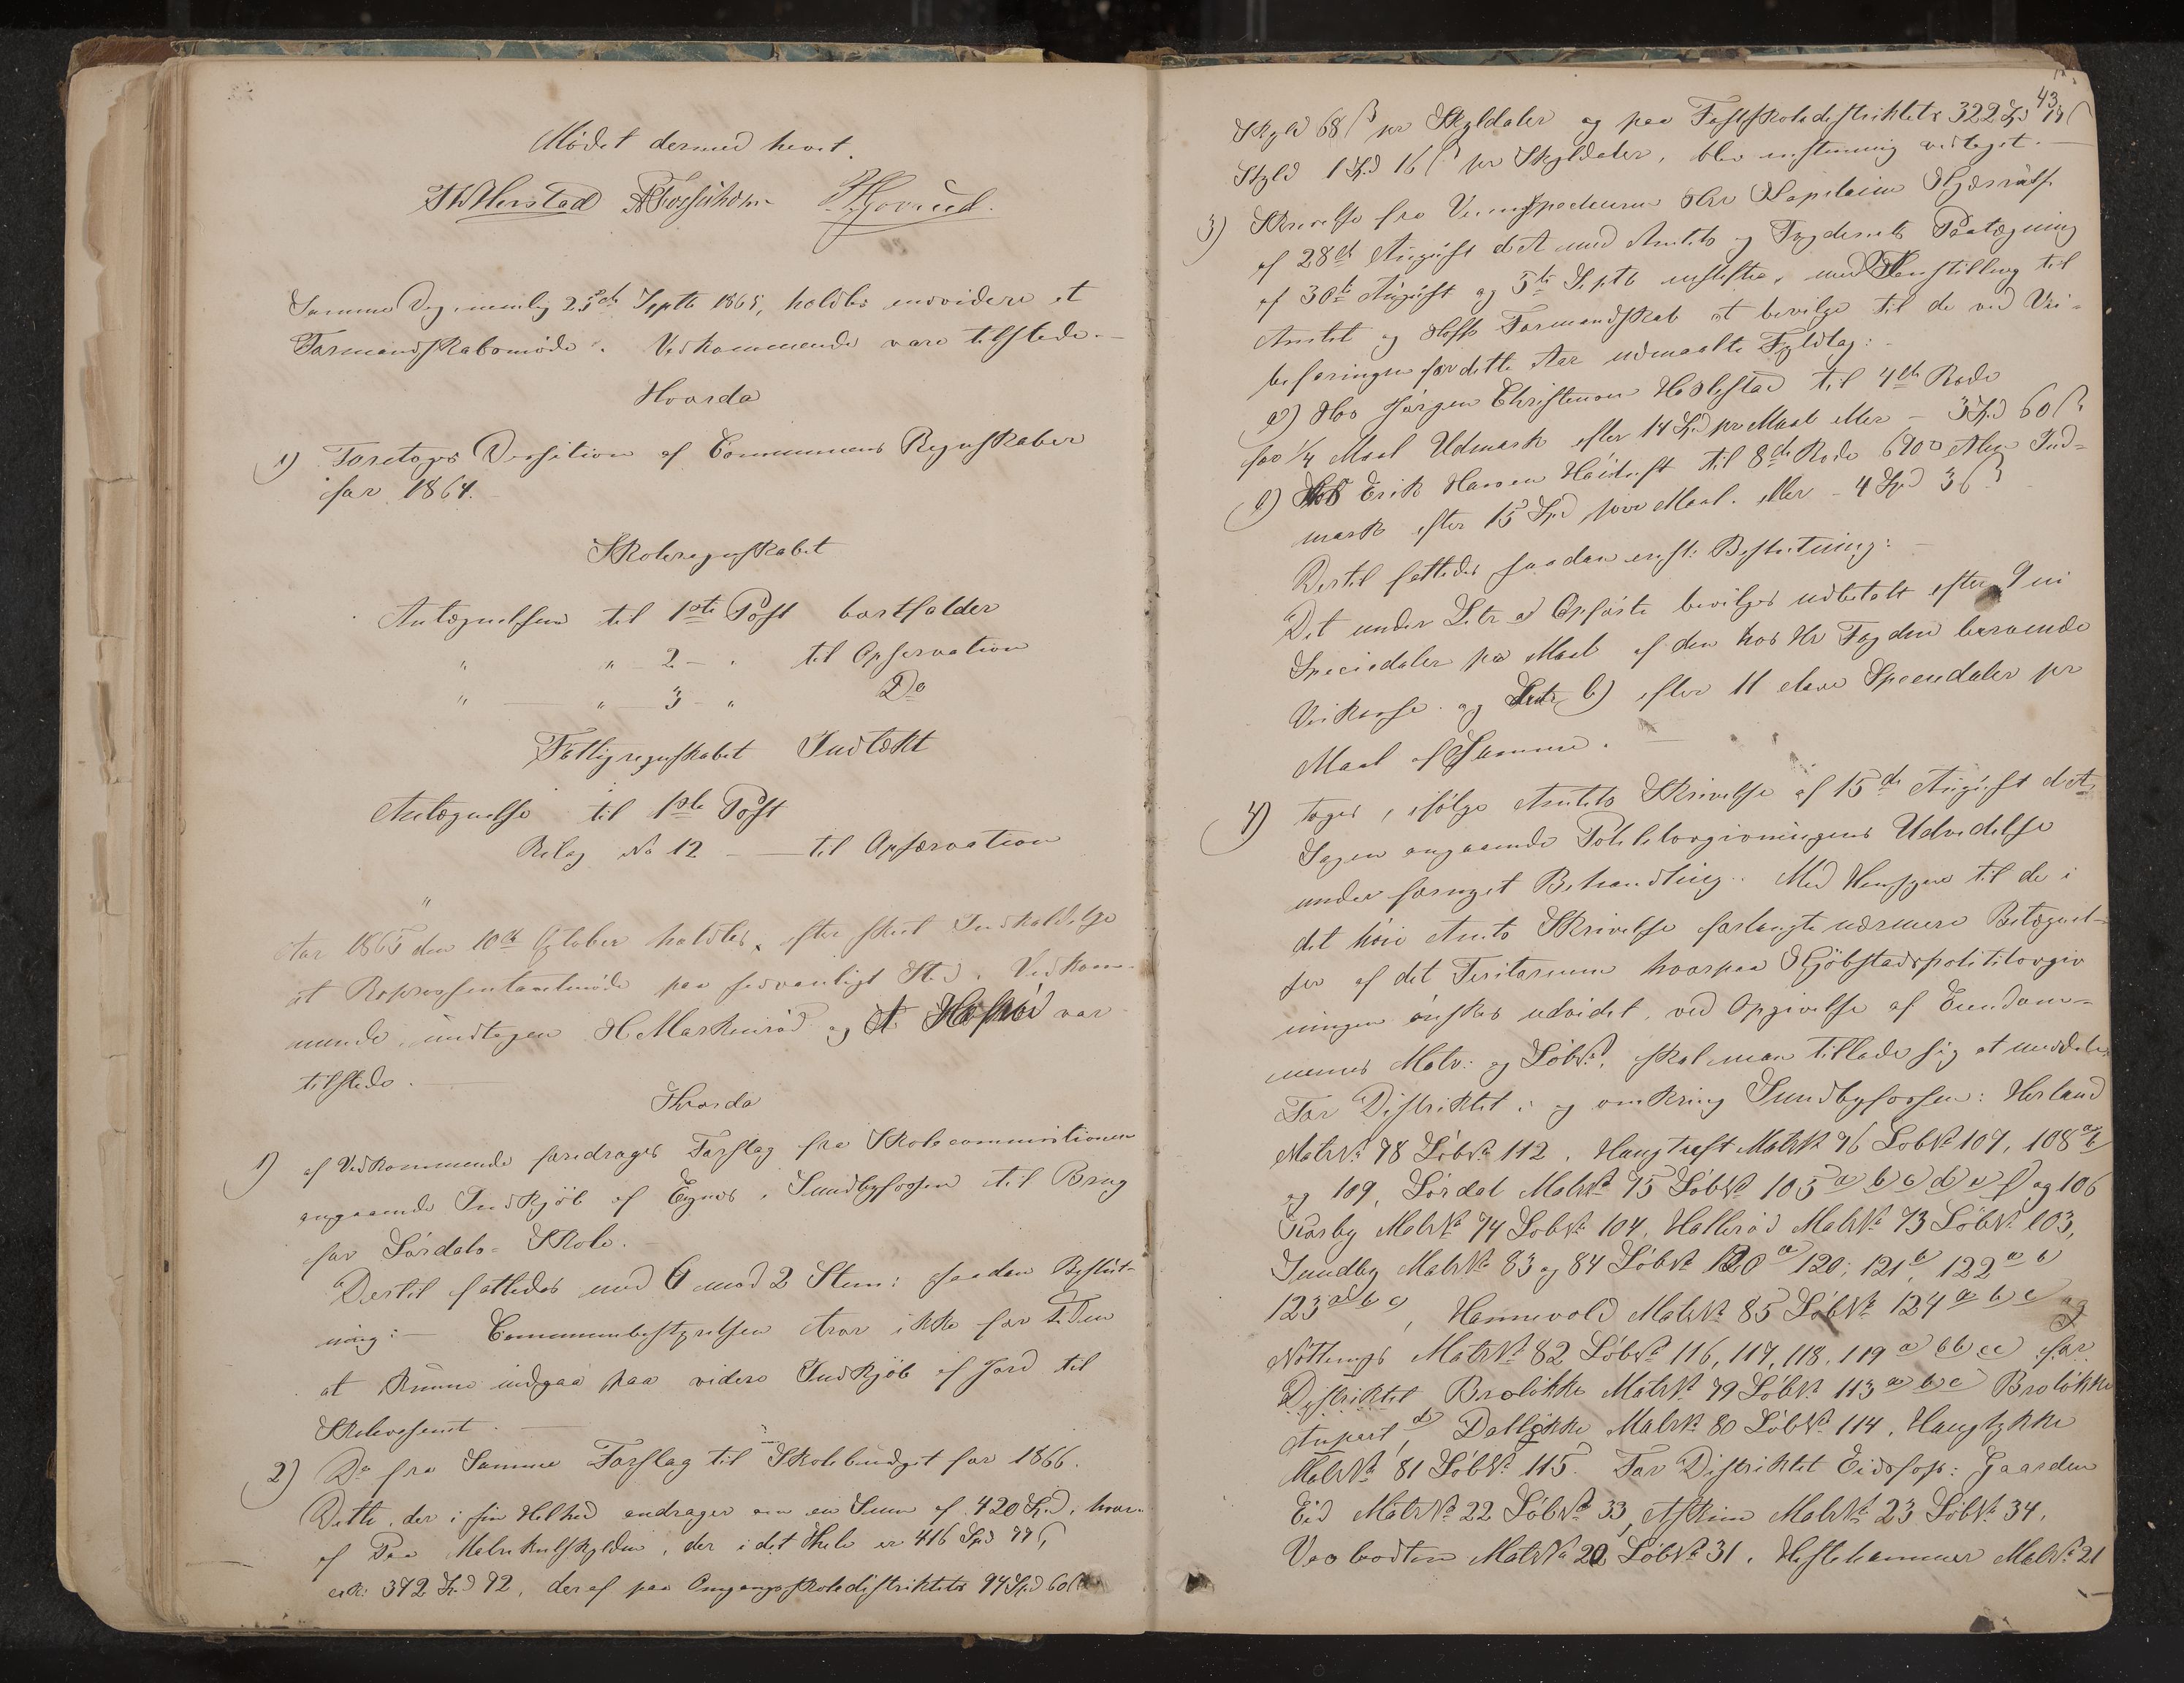 Mødet dermed hevet.
Samme Dag, nemlig 25de Septb 1865, holdtes endvidere et
Formandskabsmøde. Vedkommende vare tilstede.-
Hvorda
1) Foretoges Decision af Communens Regnskaber
for 1864.
Skoleregnskabet
Antegnelsen til 1ste Post bortfalder
" " 2 - " til Observation
" " 3 - " Do
Fattigregnskabet Indtækt
Antegnelse til 1ste Post
Bilag No 12 - til Observation
"
Aar 1865 den 10de October holdtes, efter skeet Indkaldelse
et Repræsentantmøde paa sædvanligt Sted. Vedkom-
mende, undtagen H Maskerød og A var
tilstede.
Hvorda
1) af Vedkommende foredroges Forslag fra Skolecommissionen
angaaende Indkjøb af i Sundbyfossen til Brug
for Lørdals- Skole.
Dertil fattedes med 6 mod 2 Stem: saadan Beslut-
ning:- Communebestyrelsen tror ikke for Tiden
at kunne indgaa paa videre Indkjøb af Jord til
Skolevæsenet.
2) Do fra Samme Forslag til Skolebudget for 1866.
Dette, der i sin Helhed andrager om en Sum af 420 Spd, hvor-
af paa Matrikulskylden, der i det Hele er 416 Spd
372 Spd 92, deraf paa Omgangsskoledistriktets 94 Spd 60 ß
43
Skyld 68 ß pr Skyldaler og paa Fastskoledistriktets 322 Spd
Skyld 1 Spd 16 ß pr Skyldaler, blev enstemmig vedtaget.-
3) Skrivelse fra Veiinspecteuren Hr Kapitaine
af 28de August d A med Amtets og Fogderiets Paategning
af 30te August og 5te Septb med Henstilling til
Amtet og Hoffs Formandskab at bevilge til de ved Vei-
befaringen for dette Aar udmaalte Fyldtag:-
a) Hos Jørgen Christensen Haslestad til 4de Rode
for 1/4 Maal Udmark efter 14 Spd pr Maal eller - 3 Spd 60 ß
b) Hos Erik Hansen til 8de Rode 690 Alen Ind-
mark efter 15 Spd pro Maal. eller - 4 Spd 36 ß
Dertil fattedes saadan enst: Beslutning:-
Det under Litr a) Opførte bevilges udbetalt efter 9 ni
Speciedaler pr Maal af den hos Hr Fogden beroende
Veikasse. og Litr b) efter 11 eleve Speciedaler pr
Maal af Samme.-
4) toges, ifølge Amtets Skrivelse af 15de August d A,
Sagen angaaende Politilovgivningens Udvidelse
under fornyet Behandling. Med Hensyn til de i
det høie Amts Skrivelse forlangte nærmere Betegnel-
ser af det Teritorium hvorpaa Kjøbstadspolitilovgiv
ningen ønskes udvidet, ved Opgivelse af Eiendom-
menes Matr: og LøbNo. skal man tillade sig at meddele
For Distriktet i og omkring Sundbyfossen: Herland
MatrNo 78 LøbNo 112, Haugtuft MatrNo 76 LøbNo 107, 108 a b
og 109, Lørdal MatrNo 75 LøbNo 105 a b c d e f og 106
MatrNo 74 LøbNo 104, Hallerød MatrNo 73 LøbNo 103,
Sundby MatrNo 83 og 84 LøbNo 120 a 120; 121 b, 122 a b
123 a b c, Hannevold MatrNo 85 LøbNo 124 a b c og
Nøttings MatrNo 82 LøbNo 116, 117, 118, 119 a bb cc for
Distriktet Breløkke MatrNo 79 LøbNo 113 a b c Breløkke
d Dalløkke MatrNo 80 LøbNo 114, Hauglykke
MatrNo 81 LøbNo 115. For Distriktet Eidsfoss: Gaarden
Eid MatrNo 22 LøbNo 33, Askim MatrNo 23 LøbNo 34,
MatrNo 20 LøbNo 31, Hestehammer MatrNo 21